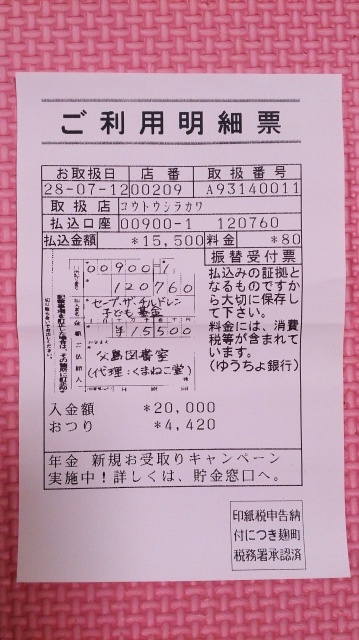 ご利用明細票
お取扱日 店番 取扱番号
28-07-12 00209 A93140011
取扱店 コウトウシラカワ
払込口座 00900-1 120760
払込金額 *15,500 料金 *80
振替受付票
払込みの証拠と
なるものですか
ら大切に保存し
て下さい。
料金には、消費
税等が含まれて
います。
(ゆうちょ銀行)
00900 1
120760
セーブ・ザ・チルドレン
子ども基金
¥15500
父島図書室
(代理:くまねこ堂)
入金額 *20,000
おつり *4,420
年金 新規お受取りキャンペーン
実施中!詳しくは、貯金窓口へ。
印紙税申告納
付につき麹町
税務署承認済